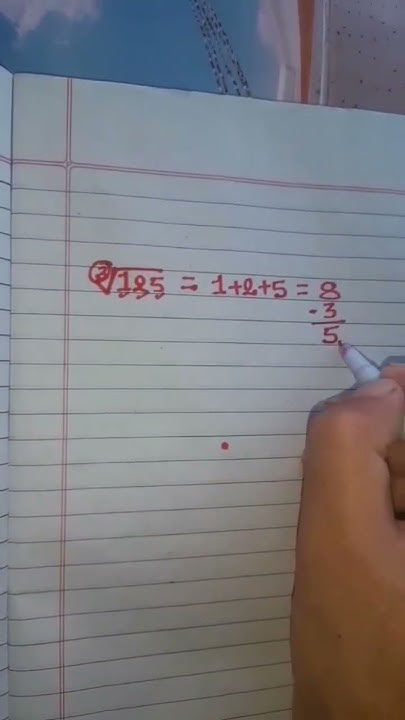 ∛125 = 1+2+5 = 8
- 3
5